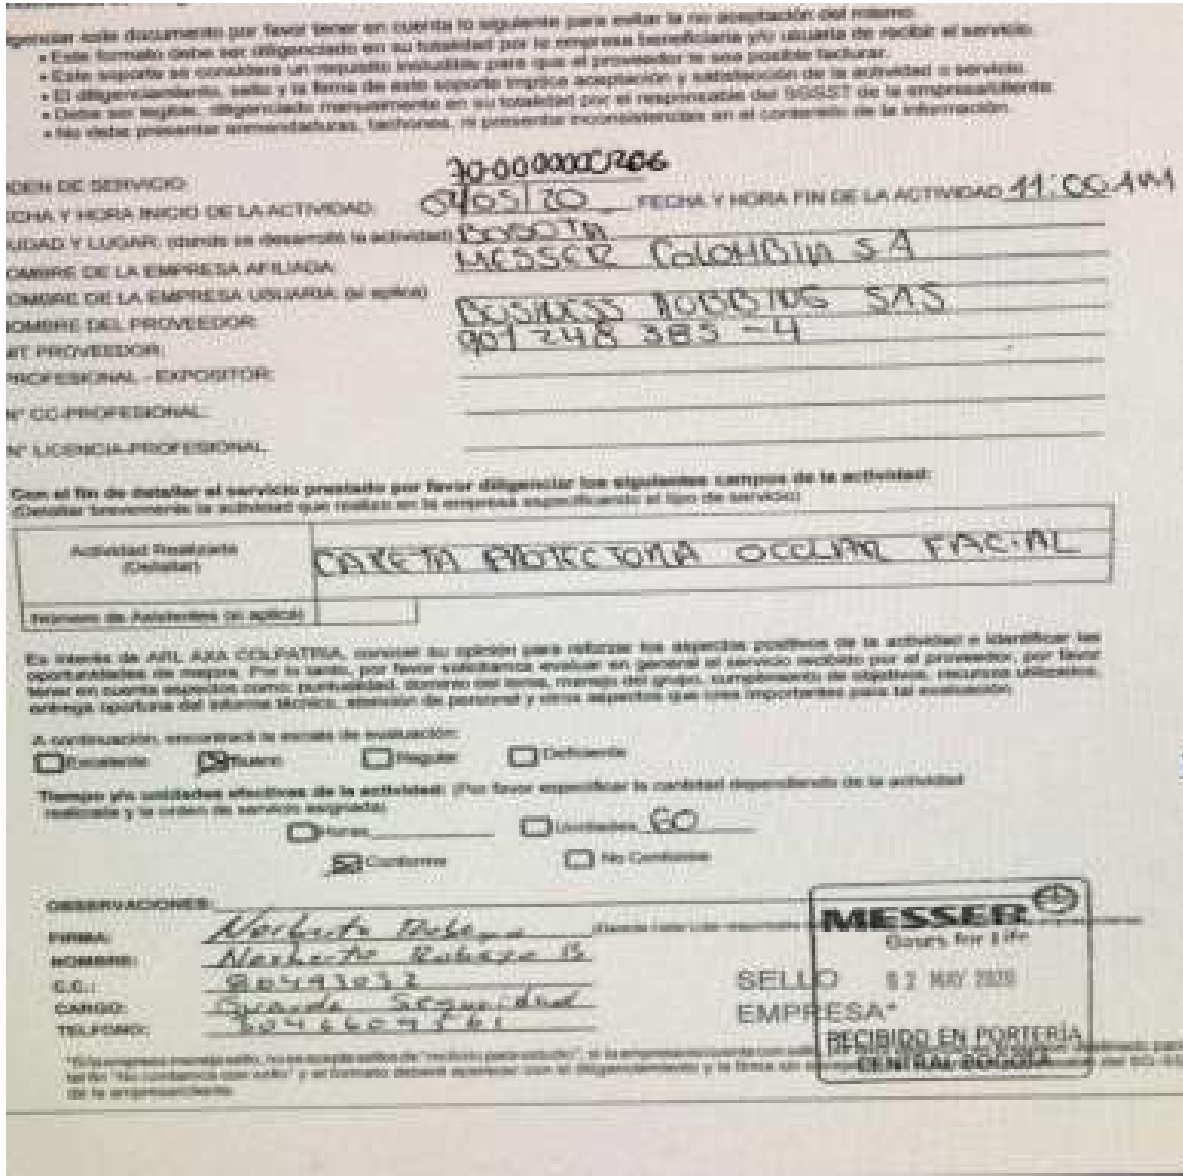 diligenciar este documento por favor tener en cuenta lo siguiente para evitar la no aceptación del mismo:
• Este formato debe ser diligenciado en su totalidad por la empresa beneficiaria y/o usuaria de recibir el servicio.
• Este soporte se considera un requisito ineludible para que al proveedor le sea posible facturar.
• El diligenciamiento, sello y la firma de este soporte implica aceptación y satisfacción de la actividad o servicio.
• Debe ser legible, diligenciado manualmente en su totalidad por el responsable del SGSST de la empresa/cliente.
• No debe presentar enmendaduras, tachones, ni presentar inconsistencias en el contenido de la información.
ORDEN DE SERVICIO:
FECHA Y HORA INICIO DE LA ACTIVIDAD: /05/20 FECHA Y HORA FIN DE LA ACTIVIDAD 11:00 AM
CIUDAD Y LUGAR: (donde se desarrolló la actividad) BOGOTA
NOMBRE DE LA EMPRESA AFILIADA: MESSER COLOMBIA SA
NOMBRE DE LA EMPRESA USUARIA: (si aplica)
NOMBRE DEL PROVEEDOR: BUSINESS SAS
NIT PROVEEDOR: 901 248 383 - 4
PROFESIONAL - EXPOSITOR:
N° CC-PROFESIONAL:
N° LICENCIA-PROFESIONAL
Con el fin de detallar el servicio prestado por favor diligenciar los siguientes campos de la actividad:
(Detallar brevemente la actividad que realizo en la empresa especificando el tipo de servicio)
Actividad Realizada
(Detallar)
CARETA PROTECTORA OCULAR FACIAL
Número de Asistentes (si aplica)
Es interés de ARL AXA COLPATRIA, conocer su opinión para reforzar los aspectos positivos de la actividad e identificar las
oportunidades de mejora. Por lo tanto, por favor solicitamos evaluar en general el servicio recibido por el proveedor, por favor
tener en cuenta aspectos como: puntualidad, dominio del tema, manejo del grupo, cumplimiento de objetivos, recursos utilizados,
entrega oportuna del informe técnico, atención de personal y otros aspectos que crea importantes para tal evaluación.
A continuación, encontrará la escala de evaluación:
Excelente Bueno Regular Deficiente
Tiempo y/o unidades efectivas de la actividad: (Por favor especificar la cantidad dependiendo de la actividad
realizada y la orden de servicio asignada)
Horas Unidades 60
Conforme No Conforme
OBSERVACIONES:
FIRMA: Norberto
NOMBRE: Norberto B
C.C.: 80493032
CARGO: Guarda Seguridad
TELEFONO:
SELLO
EMPRESA*
MESSER
Gases for Life
02 MAY 2020
RECIBIDO EN PORTERÍA
CENTRAL BOGOTA
de la empresa/cliente